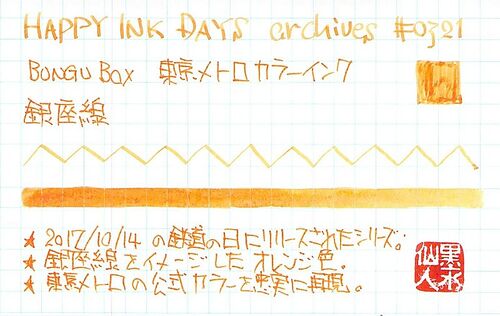 HAPPY INK DAYS archives #0321
BONGU BOX 東京メトロカラーインク
銀座線
★ 2017/10/14 の鉄道の日にリリースされたシリーズ。
★ 銀座線をイメージしたオレンジ色。
★ 東京メトロの公式カラーを忠実に再現。
墨水仙人